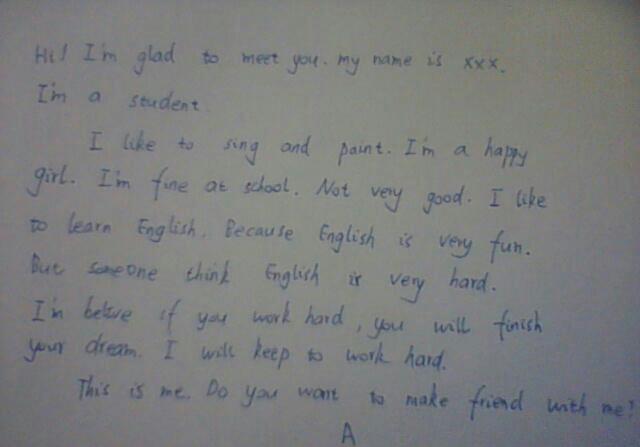 Hi! I'm glad to meet you. my name is xxx.
I'm a student.
I like to sing and paint. I'm a happy
girl. I'm fine at school. Not very good. I like
to learn English. Because English is very fun.
But someone think English is very hard.
I'm belive if you work hard, you will finish
your dream. I will keep to work hard.
This is me. Do you want to make friend with me?
A